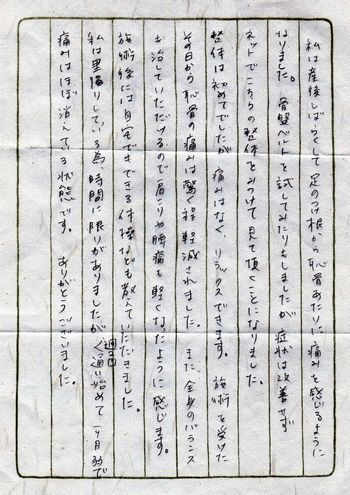 私は産後しばらくして足のつけ根から恥骨あたりに痛みを感じるように
なりました。骨盤ベルトを試してみたりもしましたが症状は改善せず
ネットでこちらの整体をみつけて見て頂くことになりました。
整体は初めてでしたが痛みはなくリラックスできます。施術を受けた
その日から恥骨の痛みは驚く程軽減されました。また全身のバランス
も治していただけるので肩こりや腰痛も軽くなたように感じます。
施術後には自宅でできる体操なども教えていただきました。
私は里帰りしている為時間に限りがありましたが週2回通い始めて一ヶ月弱で
痛みはほぼ消えてる状態です。ありがとうございました。